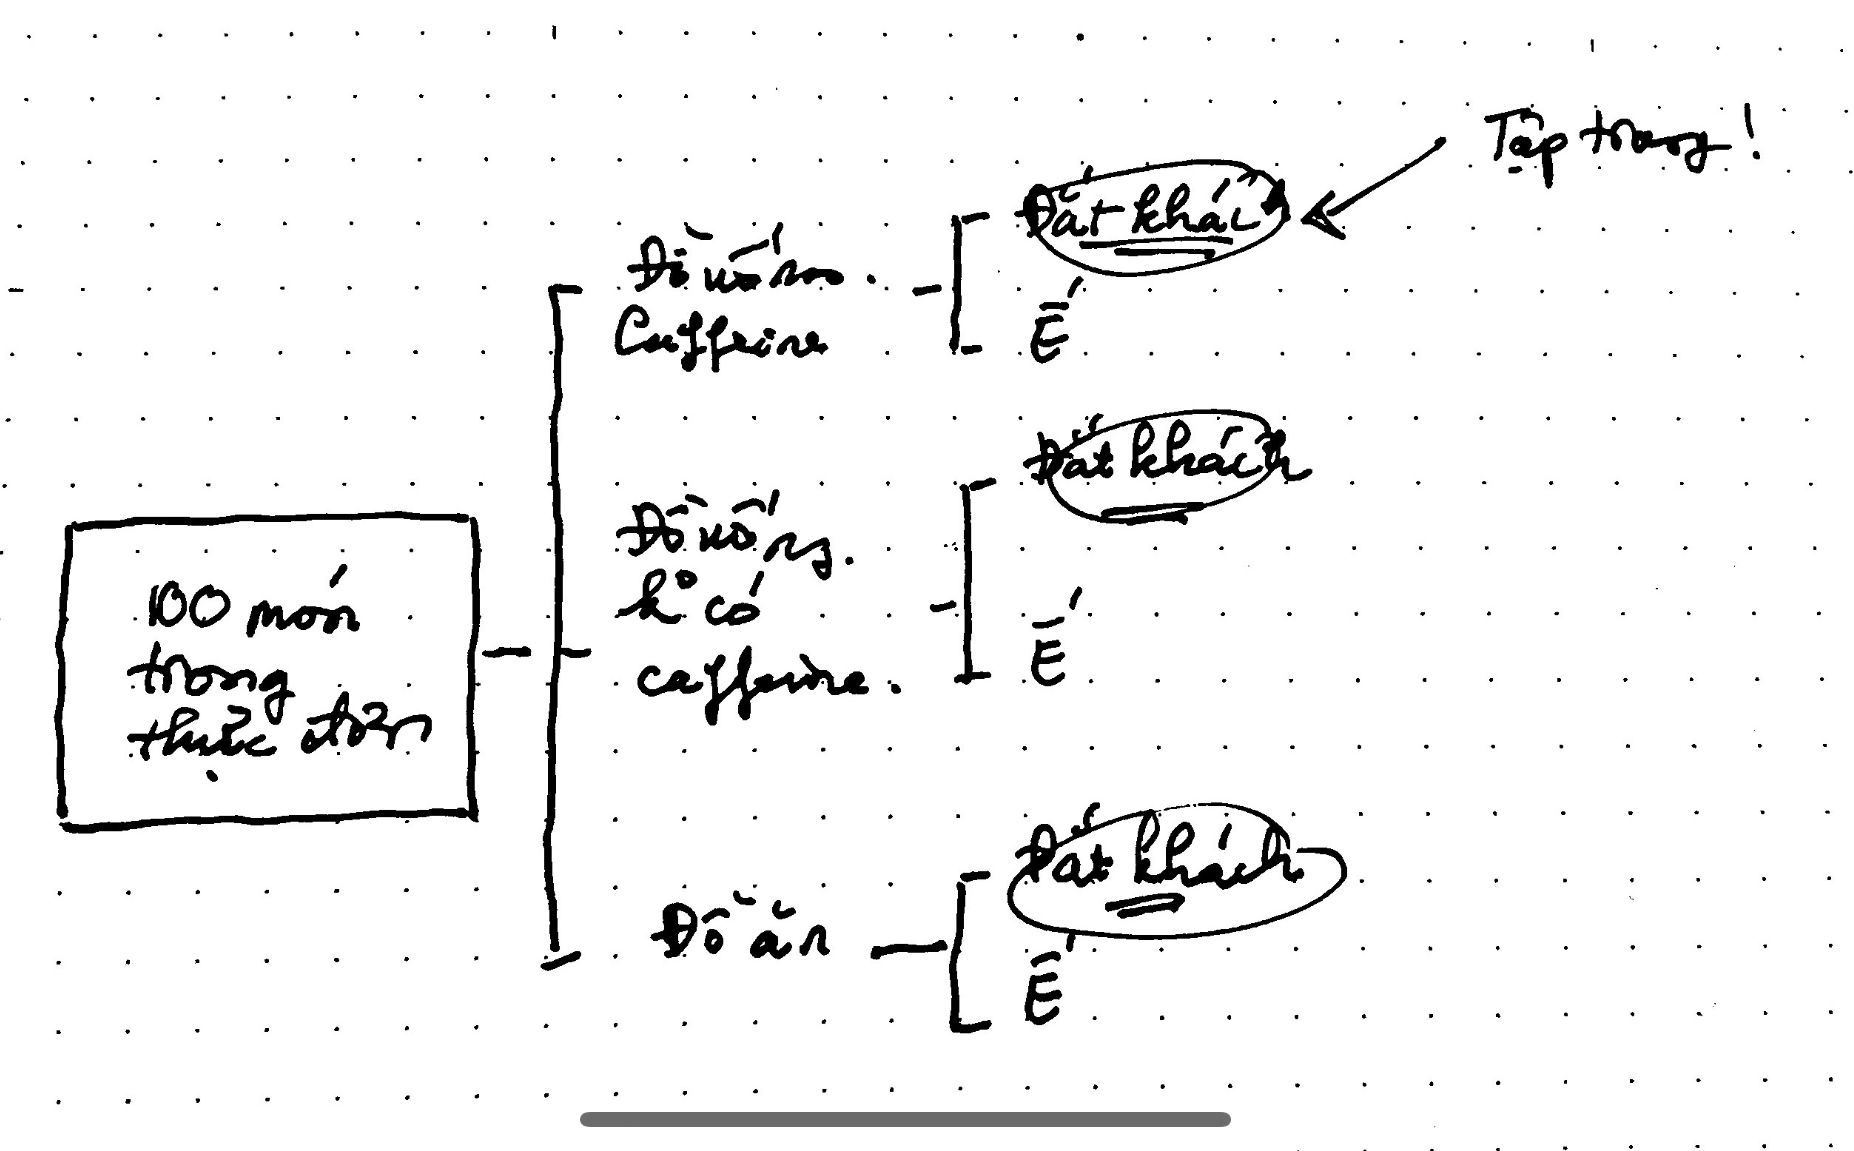 Tập trung!
Đắt khách
Đồ uống
Caffeine
Ế
Đắt khách
Đồ uống
k° có
caffeine.
100 món
trong
thực đơn
Ế
Đắt khách
Đồ ăn
Ế